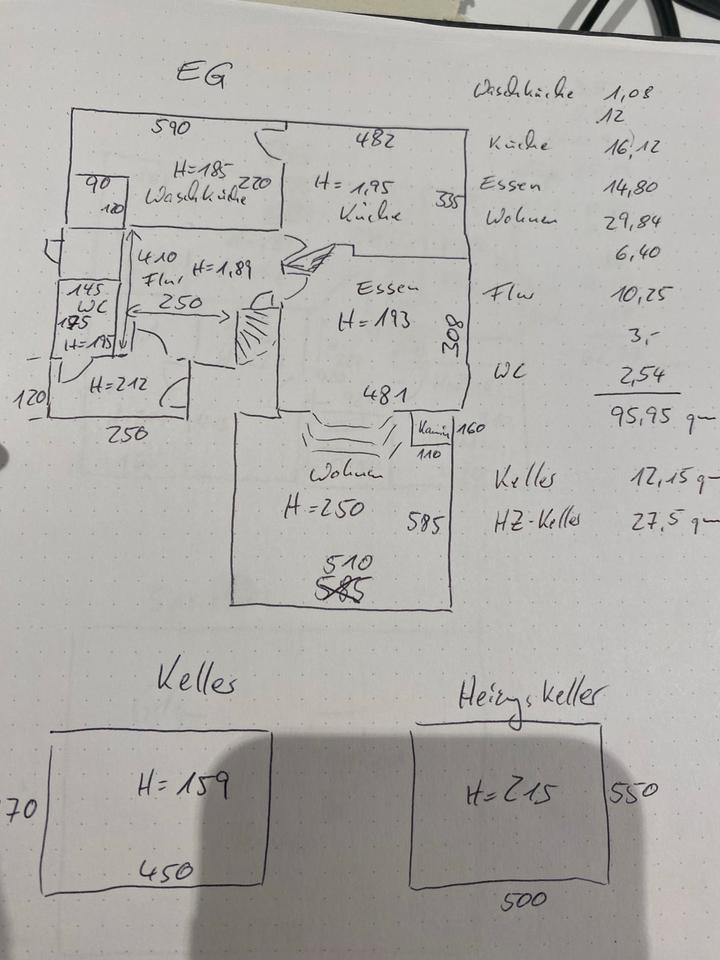 EG
Waschküche 1,08
12
Küche 16,12
Essen 14,80
Wohnen 29,84
6,40
Flur 10,25
3,-
WC 2,54
95,95 qm
Keller 12,15 qm
HZ-Keller 27,5 qm
590
482
H=185
220
Waschküche
90
120
H=1,95
Küche
335
410
Flur H=1,89
250
145
WC
175
H=195
Essen
H=193
308
481
120
H=212
250
Kamin 160
110
Wohnen
H=250
585
510
585
Keller
Heizgs Keller
70
H=159
450
H=215
550
500